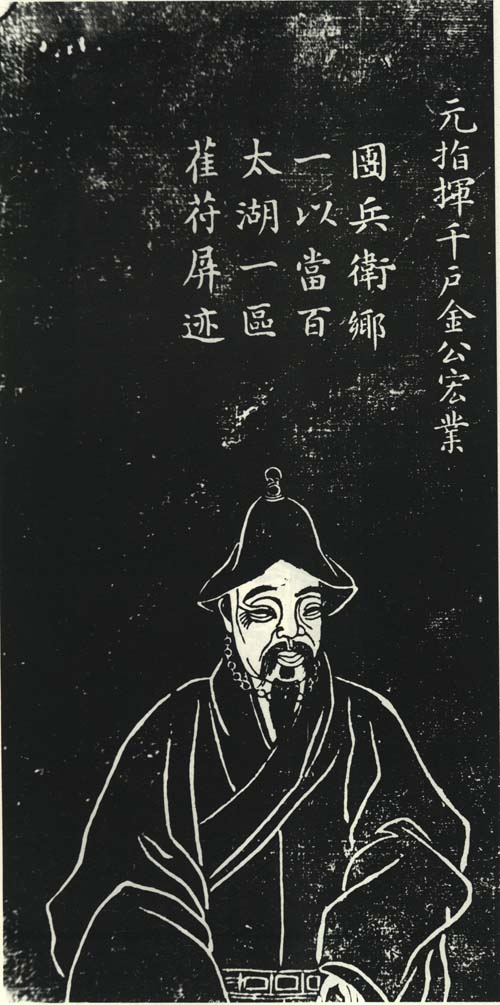 元指揮千戸金公宏業
團兵衛鄉
一以當百
太湖一區
萑苻屏迹